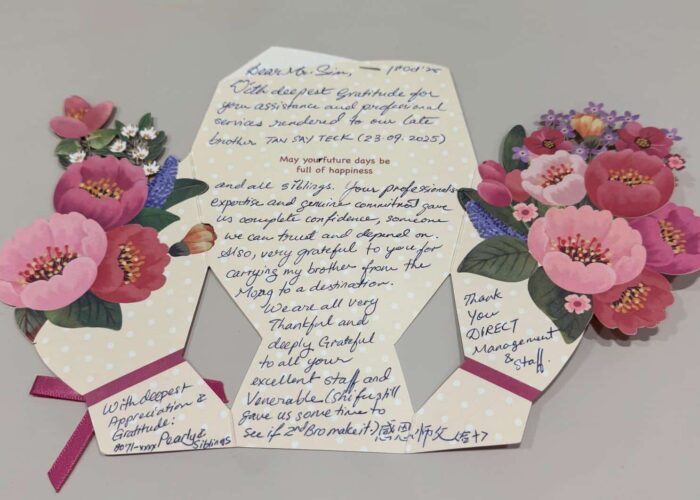 Dear Mr. Sim, 1st Oct '25
With deepest Gratitude for
your assistance and professional
services rendered to our late
brother TAN SAY TECK (23.09.2025)
May your future days be
full of happiness
and all siblings. Your professional
expertise and genuine commitment gave
us complete confidence, someone
we can trust and depend on.
Also, very grateful to you for
carrying my brother from the
to a destination.
We are all very
Thankful and
deeply Grateful
to all your
excellent staff and
Venerable (shifu still
gave us some time to
see if 2nd Bro make it.) 感恩师父
Thank
You
DIRECT
Management
& Staff.
With deepest
Appreciation &
Gratitude:
Pearly &
Siblings